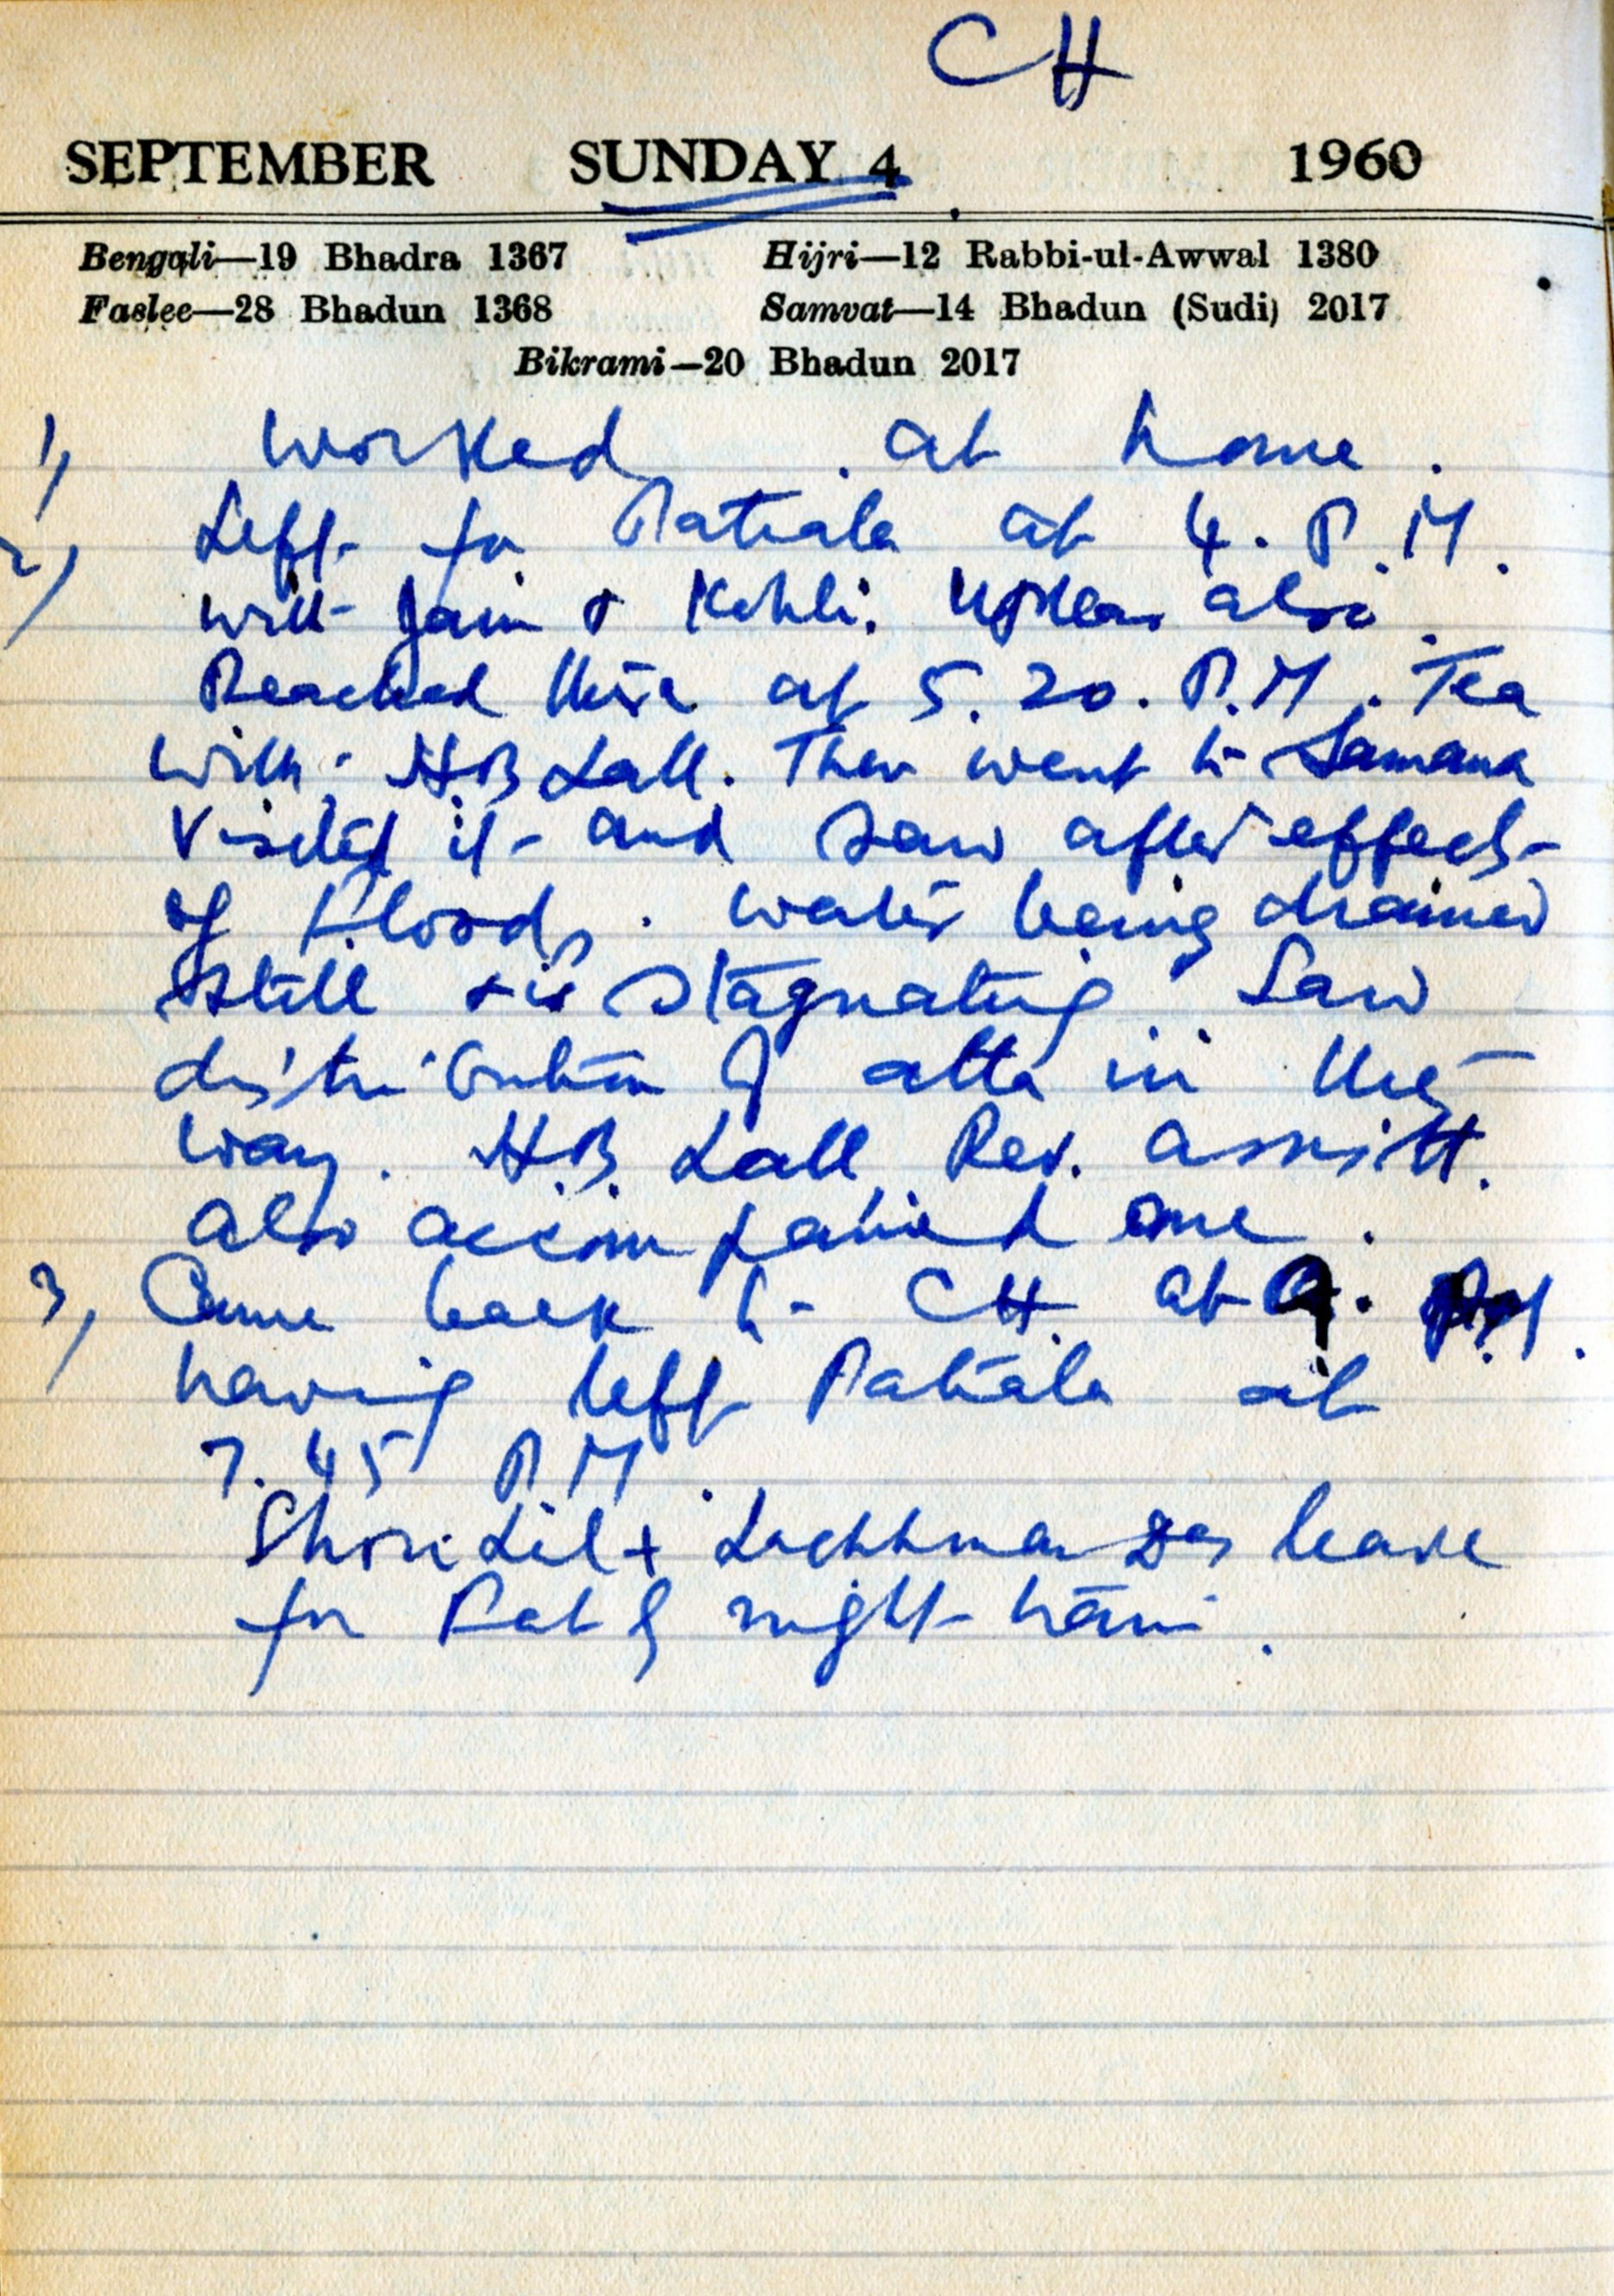 CH
SEPTEMBER SUNDAY 4 1960
Bengali—19 Bhadra 1367 Hijri—12 Rabbi-ul-Awwal 1380
Faslee—28 Bhadun 1368 Samvat—14 Bhadun (Sudi) 2017
Bikrami—20 Bhadun 2017
1) Worked at home.
2) Left for Patiala at 4. P.M.
with Jain & Kohli. also.
Reached there at 5.20. P.M. Tea
with H.B Lall. Then went to Samana
Visited it and saw after effects
of floods. Water being drained
still & is stagnating. Saw
distribution of atta in the
way. H.B. Lall, Rev. Assistt.
also accompanied me.
3) Came back to CH. at 9. P.M.
having left Patiala at
7.45 P.M.
Shori Lal & Lachhman Das leave
for by night train.